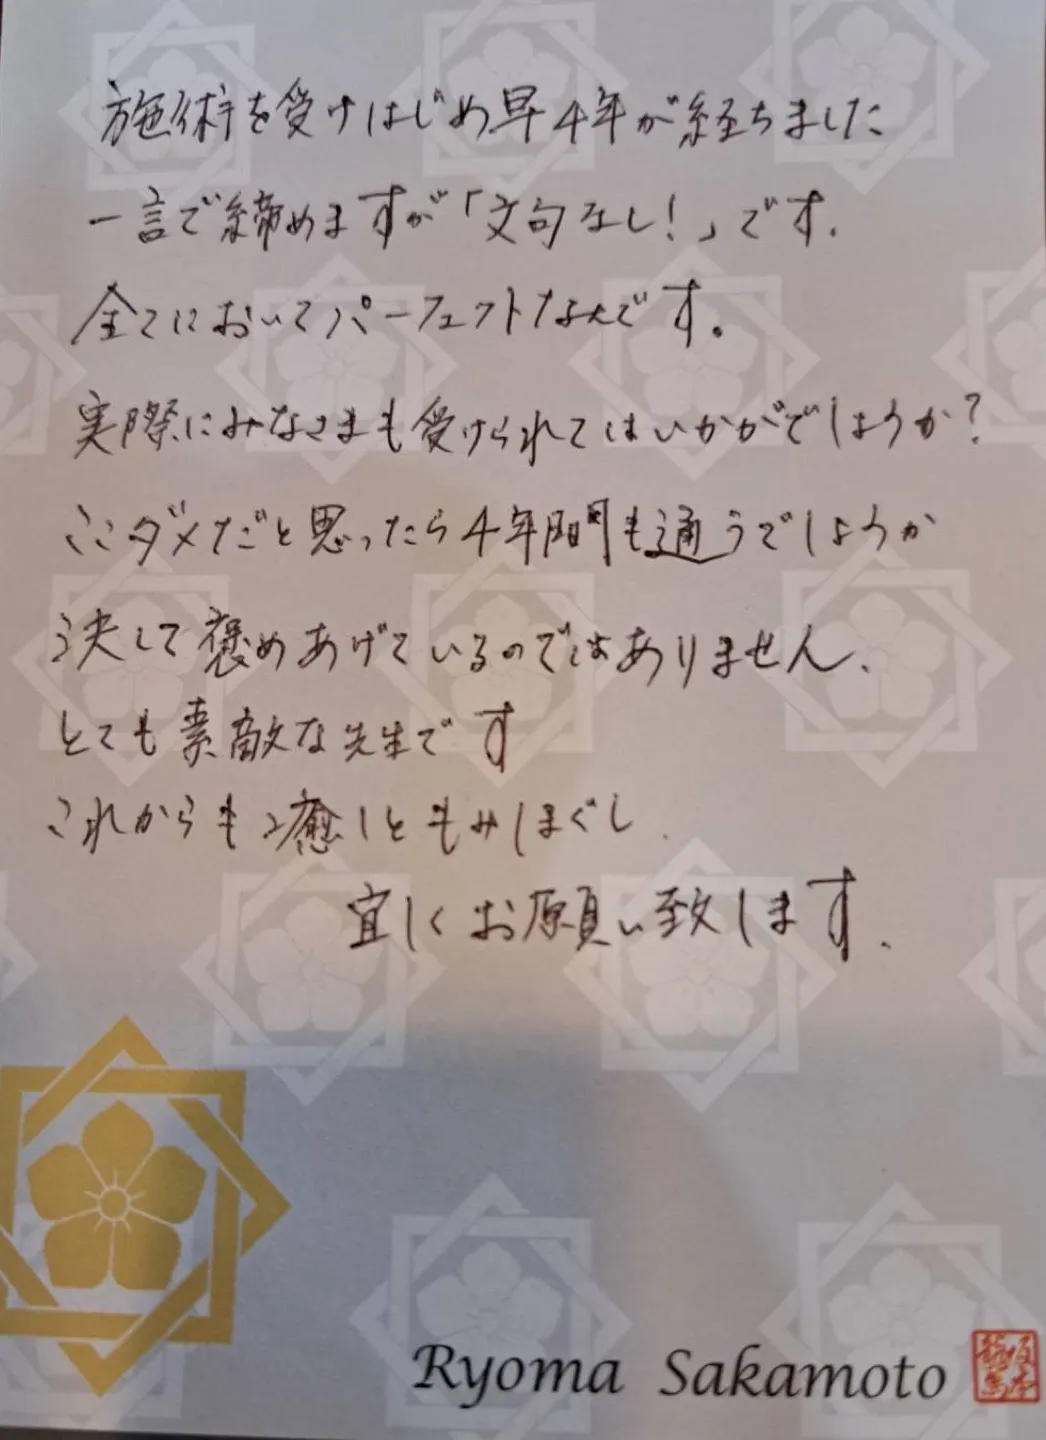 施術を受けはじめ早4年が経ちました
一言で締めますが「文句なし!」です.
全てにおいてパーフェクトなんです。
実際にみなさまも受けられてはいかがでしょうか?
ここダメだと思ったら4年間も通うでしょうか
決して褒めあげているのではありません、
とても素敵な先生です
これからも癒しともみしほぐし
宜しくお願い致します、
Ryoma Sakamoto
坂本
龍馬